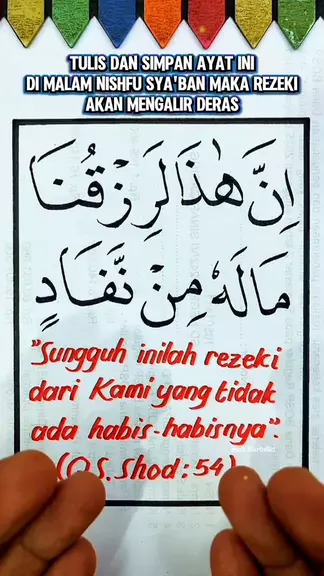 TULIS DAN SIMPAN AYAT INI
DI MALAM NISHFU SYA'BAN MAKA REZEKI
AKAN MENGALIR DERAS
اِنَّ هٰذَا لَرِزْقُنَا
مَا لَهٗ مِنْ نَّفَادٍ
"Sungguh inilah rezeki
dari Kami yang tidak
ada habis-habisnya".
(Q.S. Shod: 54)